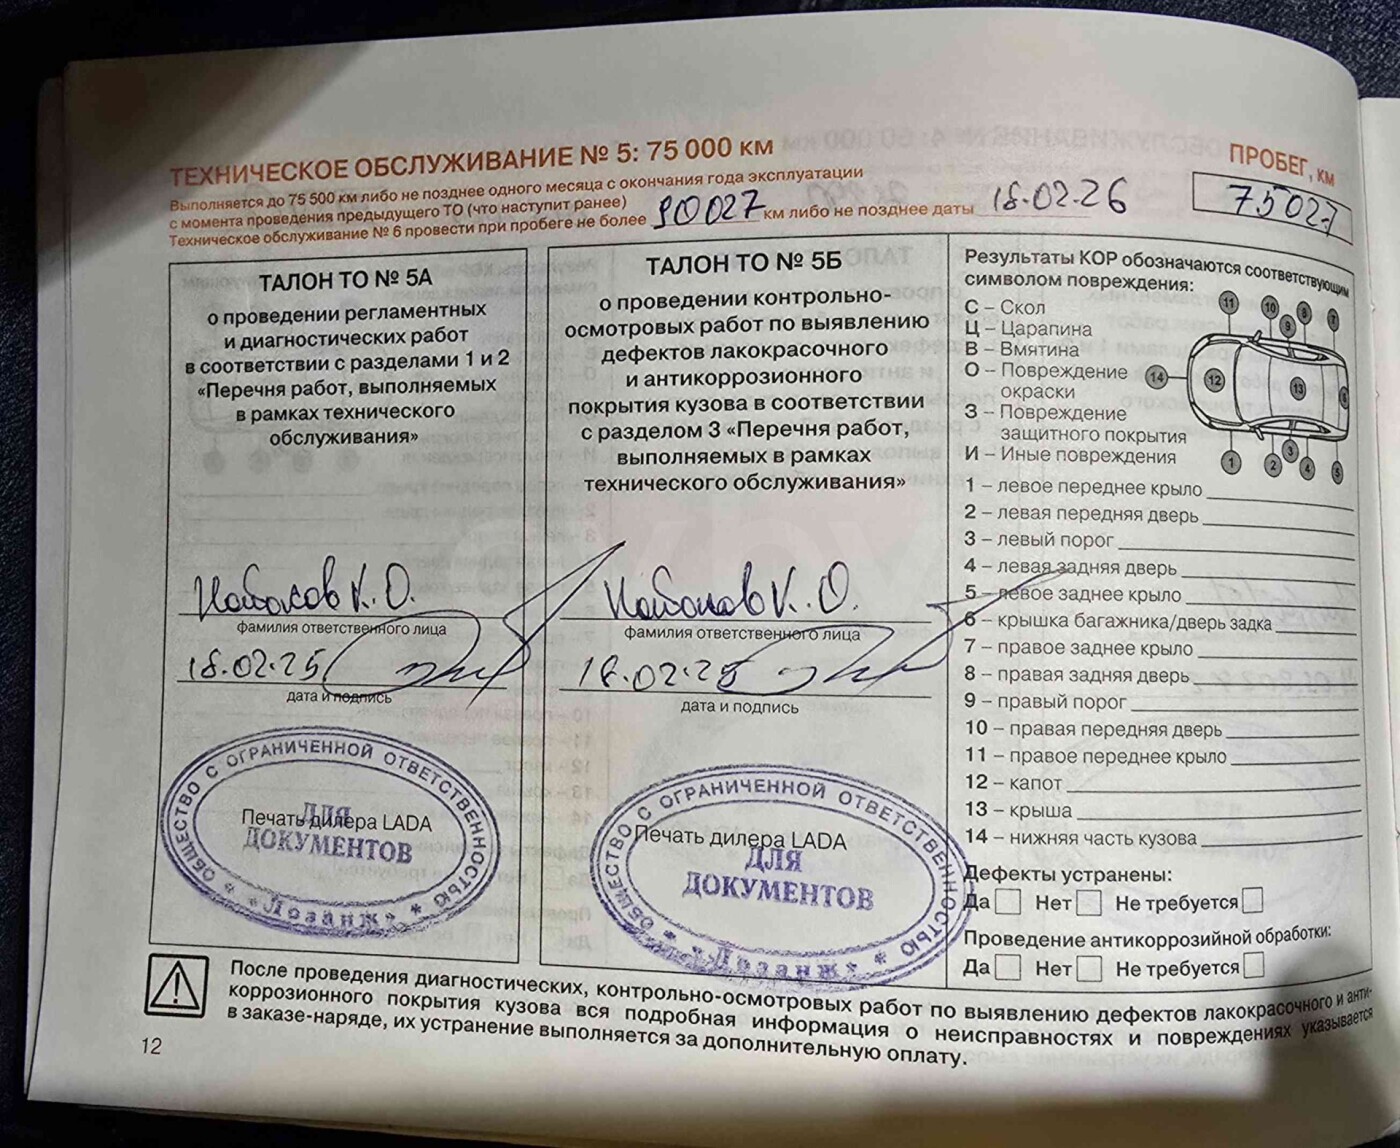 ТЕХНИЧЕСКОЕ ОБСЛУЖИВАНИЕ № 5: 75 000 км
Выполняется до 75 500 км либо не позднее одного месяца с окончания года эксплуатации
с момента проведения предыдущего ТО (что наступит ранее)
Техническое обслуживание № 6 провести при пробеге не более 90027 км либо не позднее даты 18.02.26
ПРОБЕГ, км
75027
ТАЛОН ТО № 5А
о проведении регламентных
и диагностических работ
в соответствии с разделами 1 и 2
«Перечня работ, выполняемых
в рамках технического
обслуживания»
К.О.
фамилия ответственного лица
18.02.25
дата и подпись
ОБЩЕСТВО С ОГРАНИЧЕННОЙ ОТВЕТСТВЕННОСТЬЮ
Печать дилера LADA
ДЛЯ
ДОКУМЕНТОВ
* «Лозанж» *
ТАЛОН ТО № 5Б
о проведении контрольно-
осмотровых работ по выявлению
дефектов лакокрасочного
и антикоррозионного
покрытия кузова в соответствии
с разделом 3 «Перечня работ,
выполняемых в рамках
технического обслуживания»
К.О.
фамилия ответственного лица
18.02.25
дата и подпись
ОБЩЕСТВО С ОГРАНИЧЕННОЙ ОТВЕТСТВЕННОСТЬЮ
Печать дилера LADA
ДЛЯ
ДОКУМЕНТОВ
* «Лозанж» *
Результаты КОР обозначаются соответствующим
символом повреждения:
С – Скол
Ц – Царапина
В – Вмятина
О – Повреждение
окраски
З – Повреждение
защитного покрытия
И – Иные повреждения
11 10 9 8 7
14 12 13 6
1 2 3 4 5
1 – левое переднее крыло
2 – левая передняя дверь
3 – левый порог
4 – левая задняя дверь
5 – левое заднее крыло
6 – крышка багажника/дверь задка
7 – правое заднее крыло
8 – правая задняя дверь
9 – правый порог
10 – правая передняя дверь
11 – правое переднее крыло
12 – капот
13 – крыша
14 – нижняя часть кузова
Дефекты устранены:
Да Нет Не требуется
Проведение антикоррозийной обработки:
Да Нет Не требуется
После проведения диагностических, контрольно-осмотровых работ по выявлению дефектов лакокрасочного и анти-
коррозионного покрытия кузова вся подробная информация о неисправностях и повреждениях указывается
в заказе-наряде, их устранение выполняется за дополнительную оплату.
12